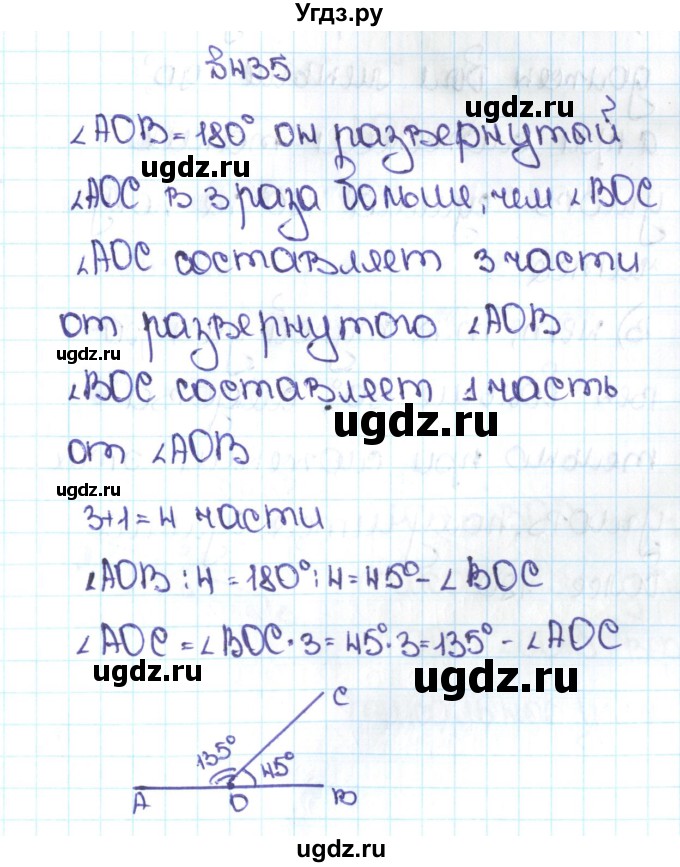 Угдз.ру
В435
∠AOB = 180° он развернутый
∠AOC в 3 раза больше, чем ∠BOC
∠AOC составляет 3 части
от развернутого ∠AOB
∠BOC составляет 1 часть
от ∠AOB
3+1=4 части
∠AOB : 4 = 180° : 4 = 45° - ∠BOC
∠AOC = ∠BOC · 3 = 45° · 3 = 135° - ∠AOC
C
135° 45°
A O B
ugdz.ru
ugdz.ru
ugdz.ru
ugdz.ru
ugdz.ru
ugdz.ru
ugdz.ru
ugdz.ru
ugdz.ru
ugdz.ru